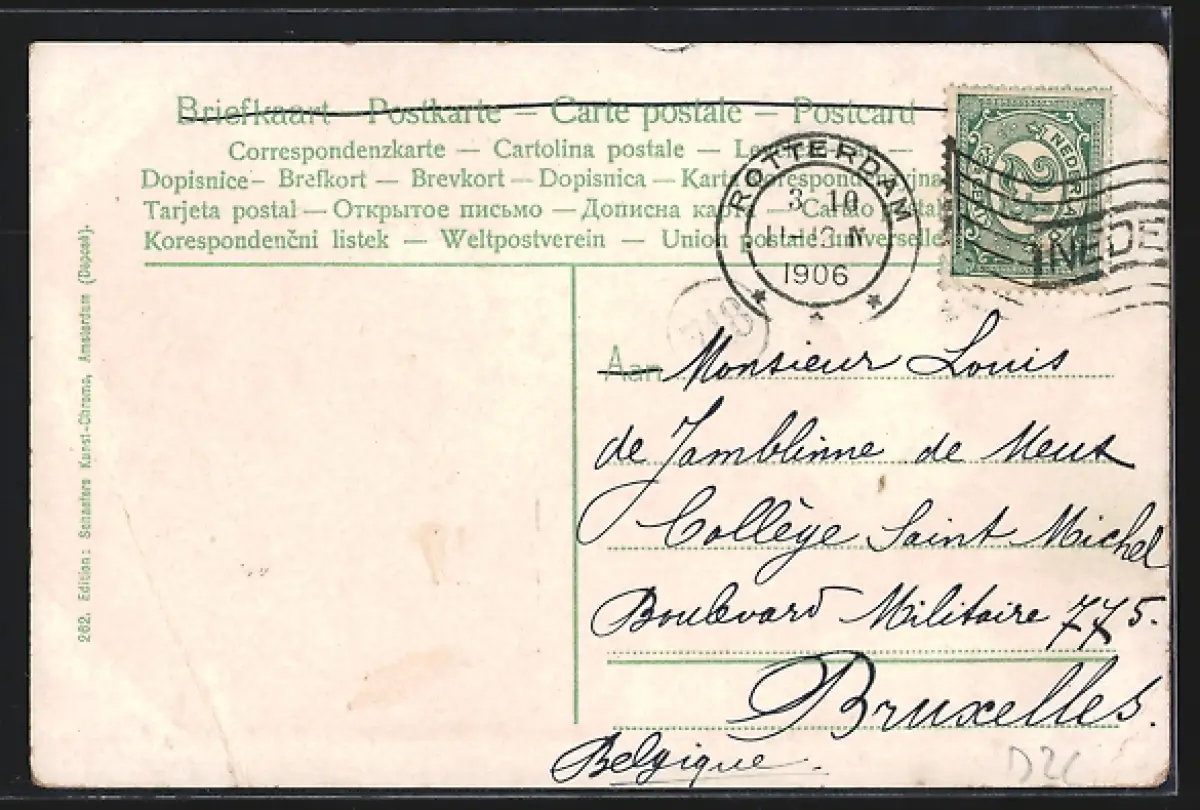 Briefkaart — Postkarte — Carte postale — Postcard
Correspondenzkarte — Cartolina postale —
Dopisnice — Brefkort — Brevkort — Dopisnica —
Tarjeta postal — Открытое письмо — Дописна карта —
Korespondenční listek — Weltpostverein — Union postale universelle
ROTTERDAM
3 10
1906
NEDE
Aan Monsieur Louis
de Jamblinne de Meux
Collège Saint Michel
Boulevard Militaire 775.
Bruxelles.
Belgique.
282. Edition: Schaefers Kunst-Chromo, Amsterdam (Deposé).